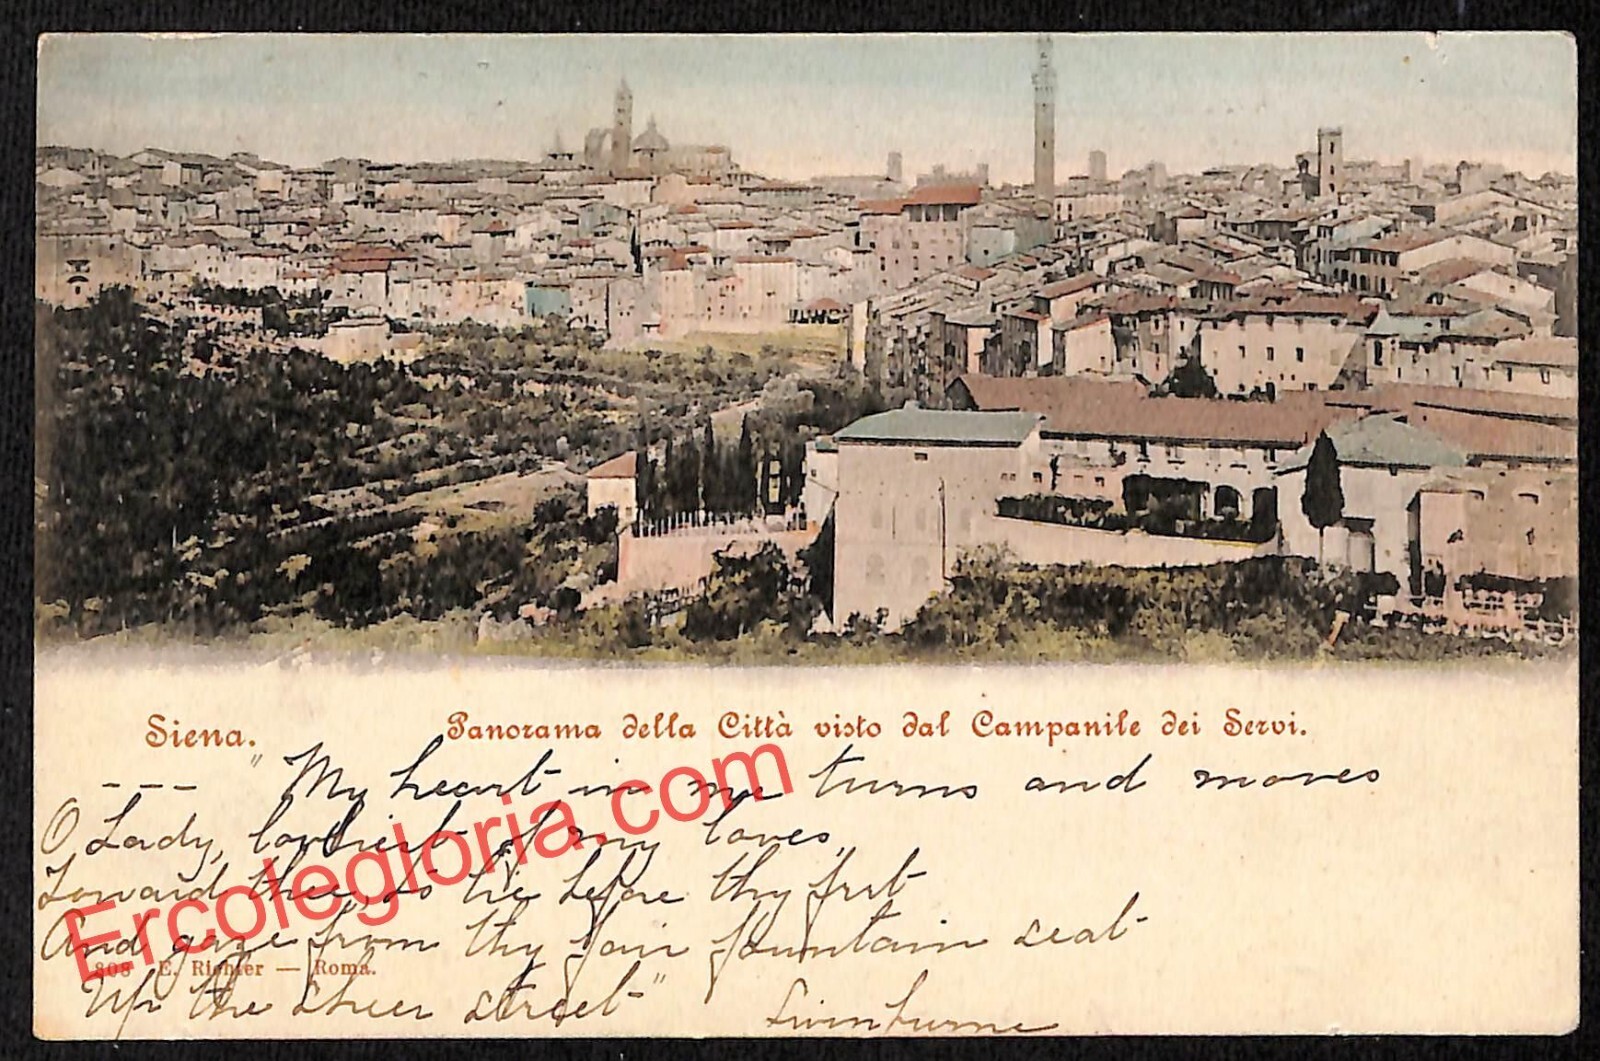 Siena. Panorama della Città visto dal Campanile dei Servi.
--- "My heart in me turns and moves
O Lady, loveliest of my loves,
Toward thee, to lie before thy feet
And gaze from thy fair fountain seat
Up the sheer street"
Swinburne
808 E. Richter — Roma.
Ercolegloria.com